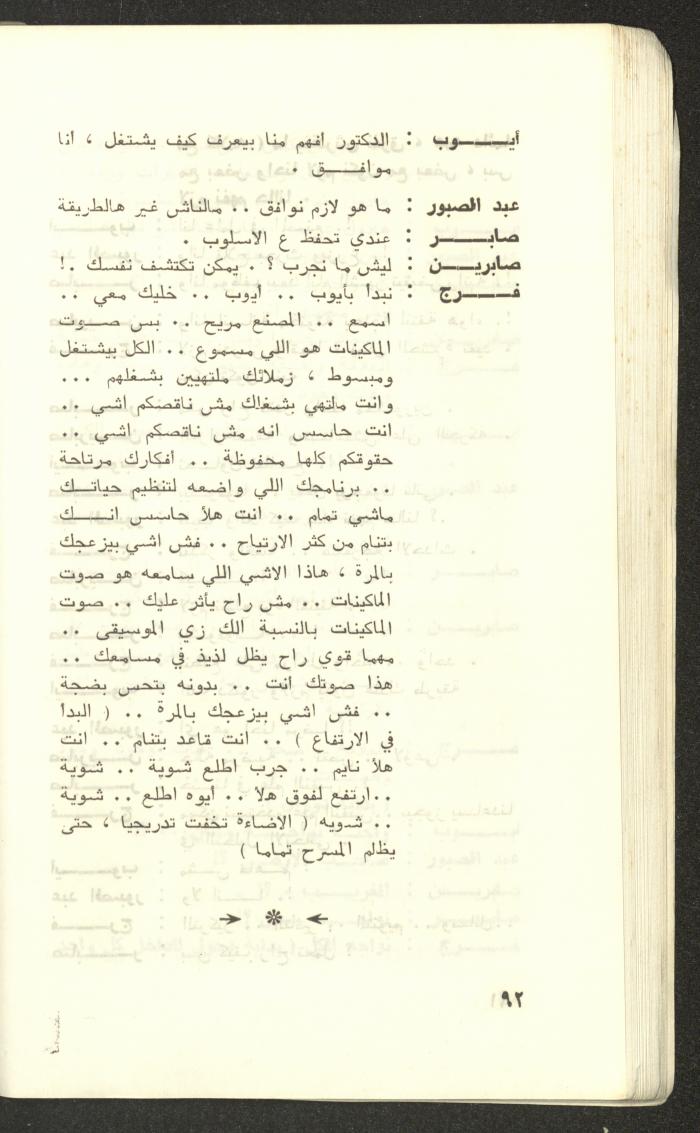 أيــــوب : الدكتور افهم منا بيعرف كيف يشتغل ، انا
موافــــق .
عبد الصبور : ما هو لازم نوافق .. مالناش غير هالطريقة
صابــــــر : عندي تحفظ ع الاسلوب .
صابريــــن : ليش ما نجرب ؟ . يمكن تكتشف نفسك .!
فــــــرج : نبدأ بأيوب .. أيوب .. خليك معي ..
اسمع .. المصنع مريح .. بس صــوت
الماكينات هو اللي مسموع .. الكل بيشتغل
ومبسوط ، زملائك ملتهيين بشغلهم ...
وانت مالتهي بشغلك مش ناقصكم اشي ..
انت حاسس انه مش ناقصكم اشي ..
حقوقكم كلها محفوظة .. أفكارك مرتاحة
.. برنامجك اللي واضعه لتنظيم حياتــك
ماشي تمام .. انت هلأ حاسس انــــك
بتنام من كثر الارتياح .. فش اشي بيزعجك
بالمرة ، هاذا الاشي اللي سامعه هو صوت
الماكينات .. مش راح يأثر عليك .. صوت
الماكينات بالنسبة الك زي الموسيقى ..
مهما قوي راح يظل لذيذ في مسامعك ..
هذا صوتك انت .. بدونه بتحس بضجة
.. فش اشي بيزعجك بالمرة .. ( البدأ
في الارتفاع ) .. انت قاعد بتنام .. انت
هلأ نايم .. جرب اطلع شوية .. شوية
..ارتفع لفوق هلأ .. أيوه اطلع .. شوية
.. شويه ( الاضاءة تخفت تدريجيا ، حتى
يظلم المسرح تماما )
٩٢